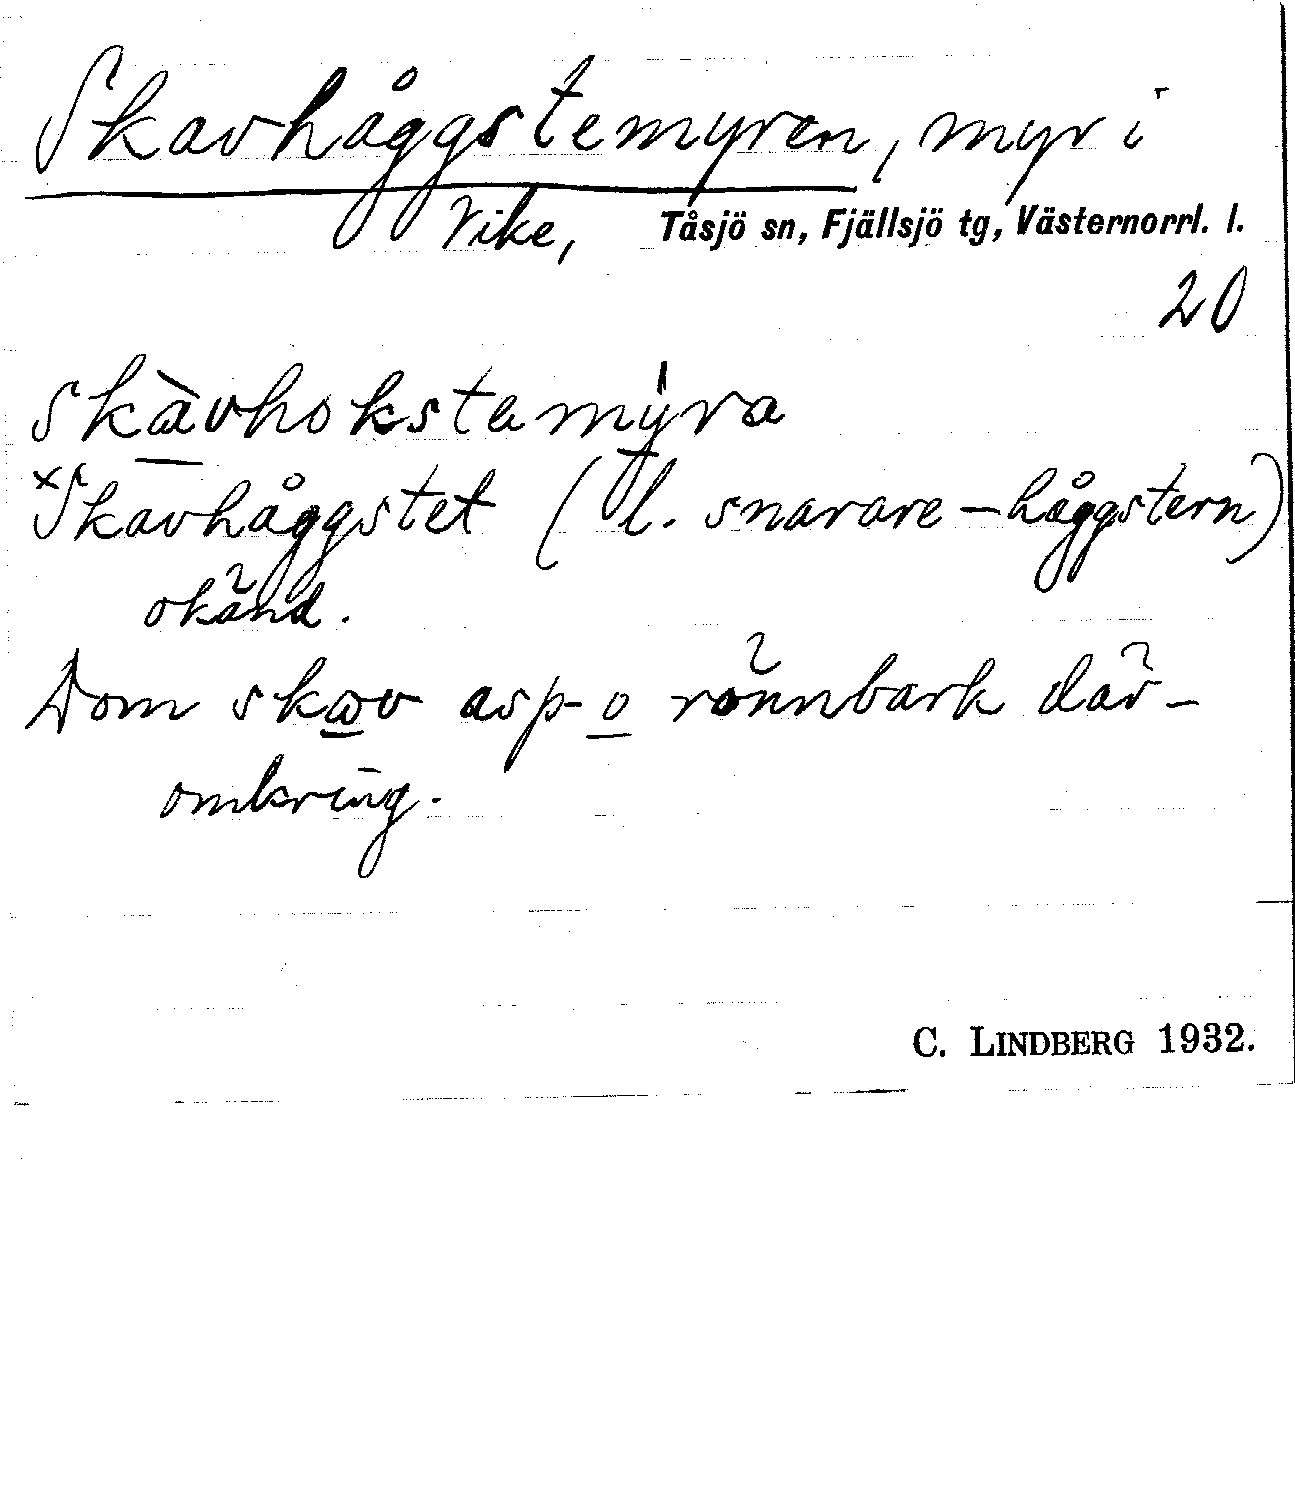 Skavhåggstemyren, myr i
Vike, Tåsjö sn, Fjällsjö tg, Västernorrl. l.
20
skàvhokstemýra
×Skavhåggstet (l. snarare –håggstern)
okänd.
Dom skav asp- o rönnbark där-
omkring.
C. LINDBERG 1932.